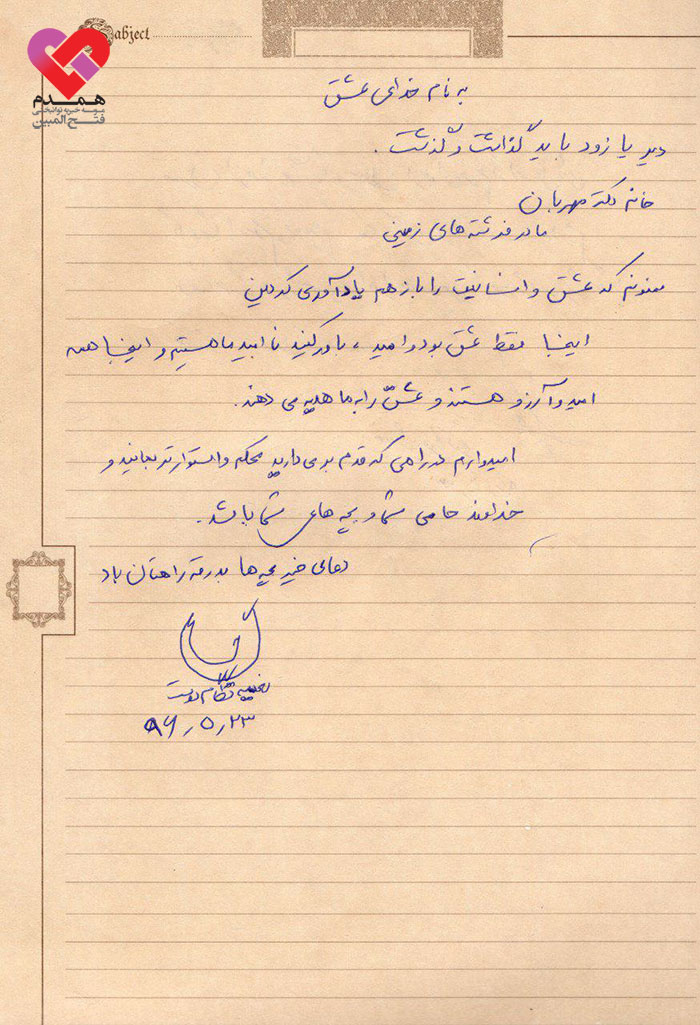 abject
همدم
موسسه خیریه توانبخشی
فتح المبین
به نام خدای عشق
دیر یا زود باید گذاشت و گذشت.
خانم دکتر مهربان
مادر فرشته‌های زمینی
ممنونم که عشق و انسانیت را باز هم یادآوری کردین
اینجا فقط عشق بود و امید، باور کنید ناامید ما هستیم و اینجا همه
امید و آرزو هستند و عشق را به ما هدیه می دهند.
امیدوارم در راهی که قدم بر می دارید محکم و استوارتر بمانید و
خداوند حامی شما و بچه های شما باشد.
دعای خیر بچه ها بدرقه راهتان باد
دوست
۹۶٫۵٫۲۳